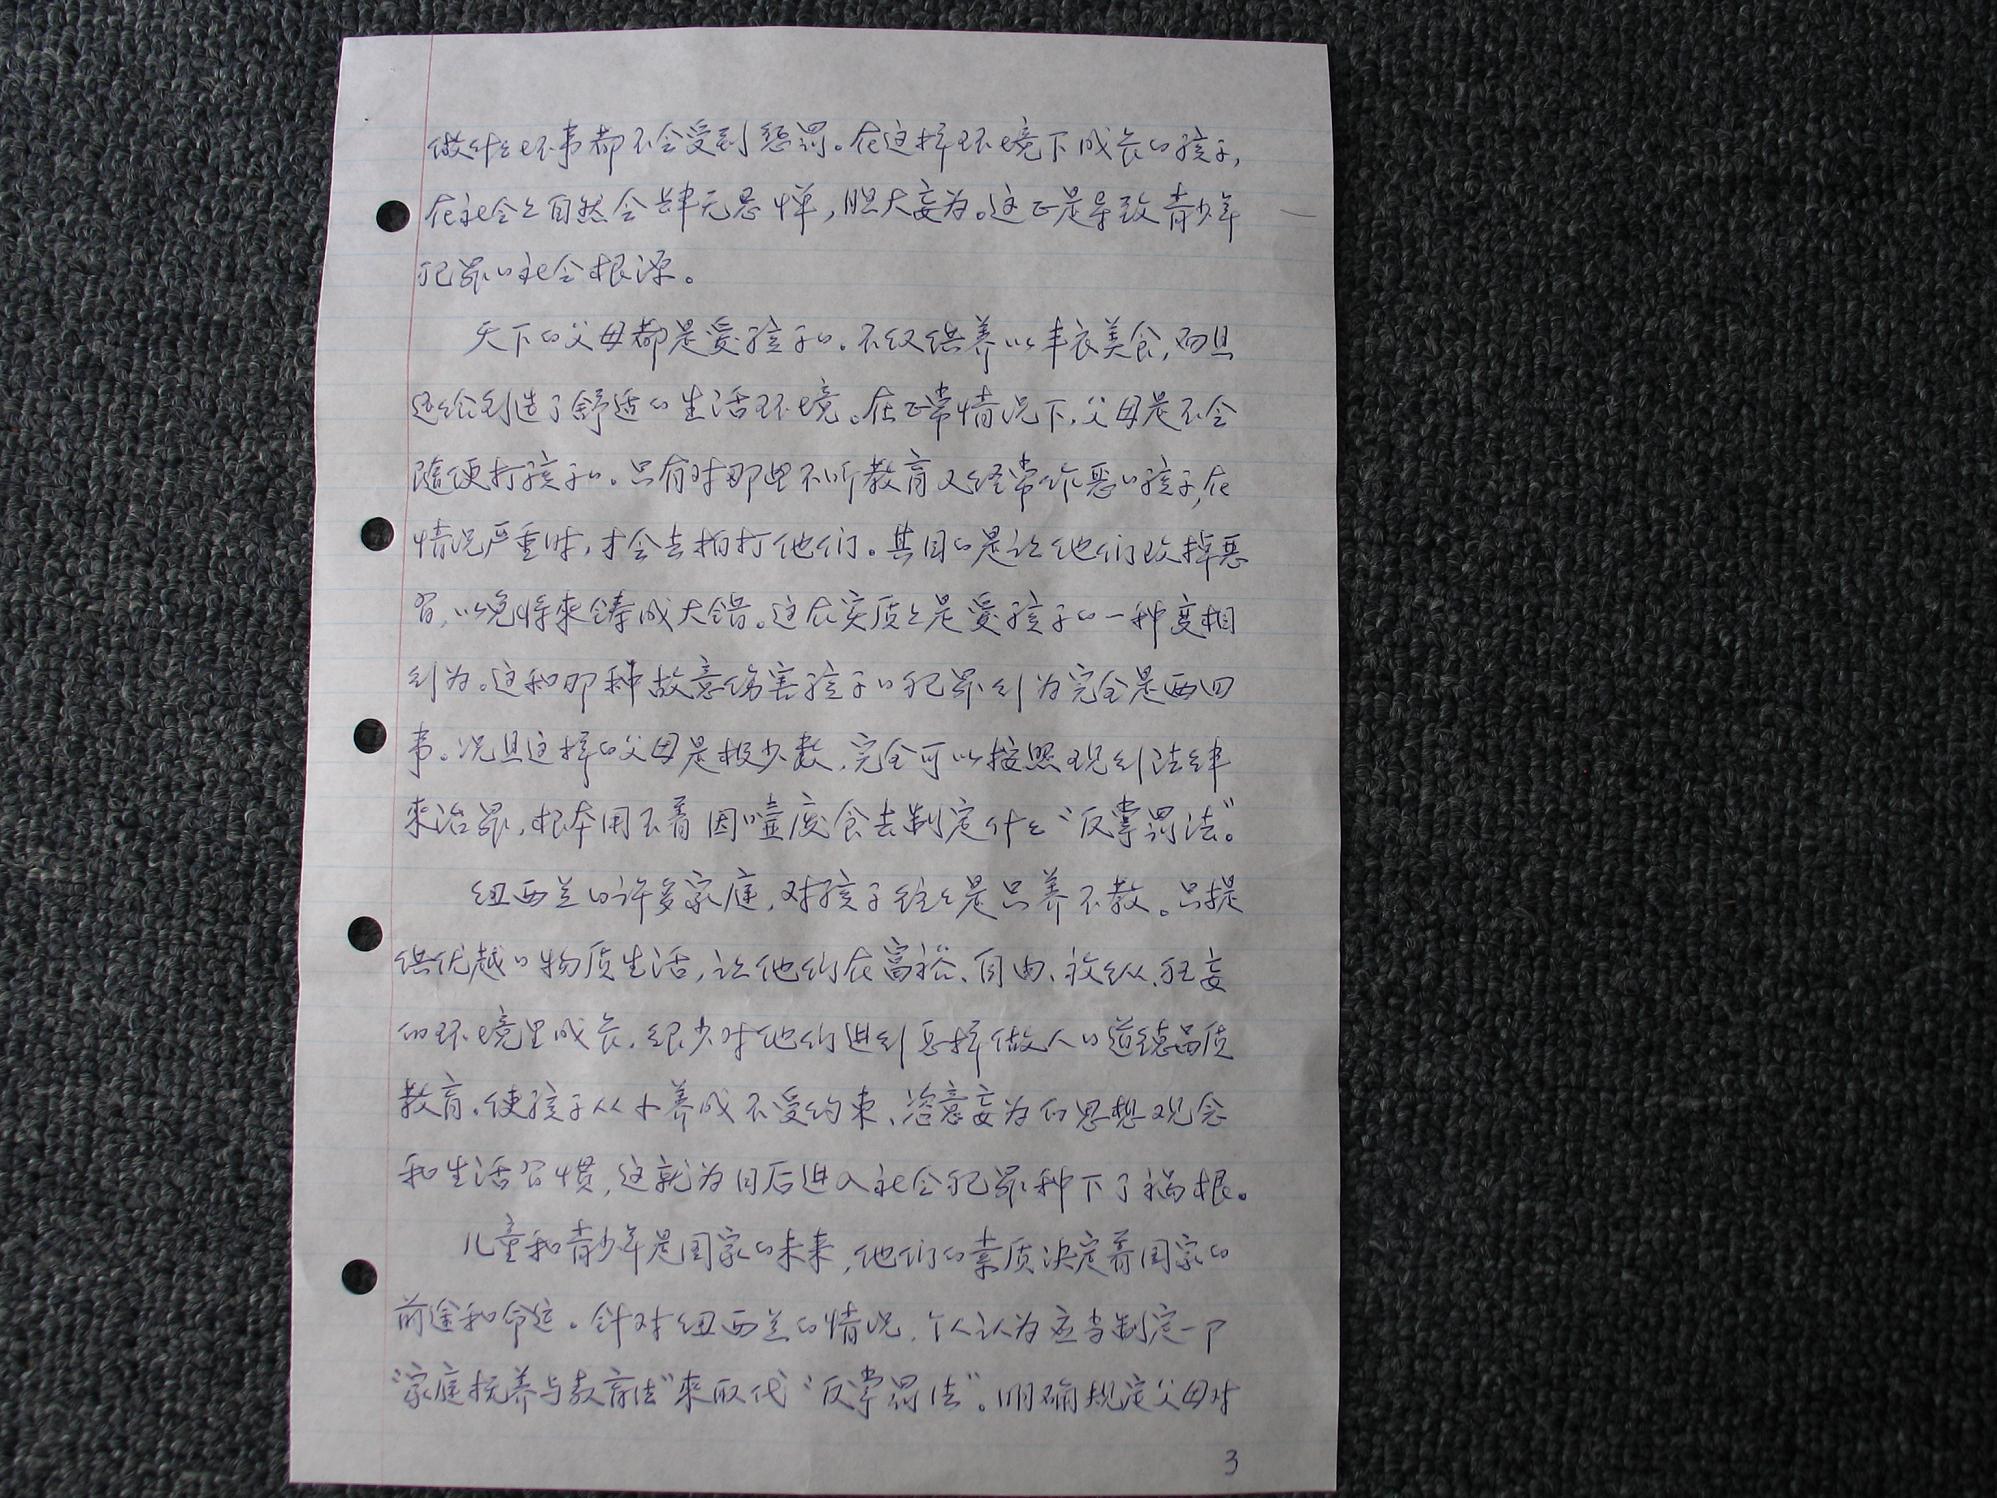 做什么坏事都不会受到惩罚。在这样环境下成长的孩子,
在社会上自然会肆无忌惮,胆大妄为。这正是导致青少年
犯罪的社会根源。
天下的父母都是爱孩子的。不仅供养以丰衣美食,而且
还给创造了舒适的生活环境。在正常情况下,父母是不会
随便打孩子的。只有对那些不听教育又经常作恶的孩子,在
情况严重时,才会去拍打他们。其目的是让他们改掉恶
习,以免将来铸成大错。这在实质上是爱孩子的一种变相
行为。这和那种故意伤害孩子的犯罪行为完全是两回
事。况且这样的父母是极少数,完全可以按照现行法律
来治罪,根本用不着因噎废食去制定什么“反掌罚法”。
纽西兰的许多家庭,对孩子往往是只养不教。只提
供优越的物质生活,让他们在富裕、自由、放纵、狂妄
的环境里成长,很少对他们进行怎样做人的道德品质
教育。使孩子从小养成不受约束、恣意妄为的思想观念
和生活习惯,这就为日后进入社会犯罪种下了祸根。
儿童和青少年是国家的未来,他们的素质决定着国家的
前途和命运。针对纽西兰的情况,个人认为应当制定一个
“家庭抚养与教育法”来取代“反掌罚法”。明确规定父母对
3